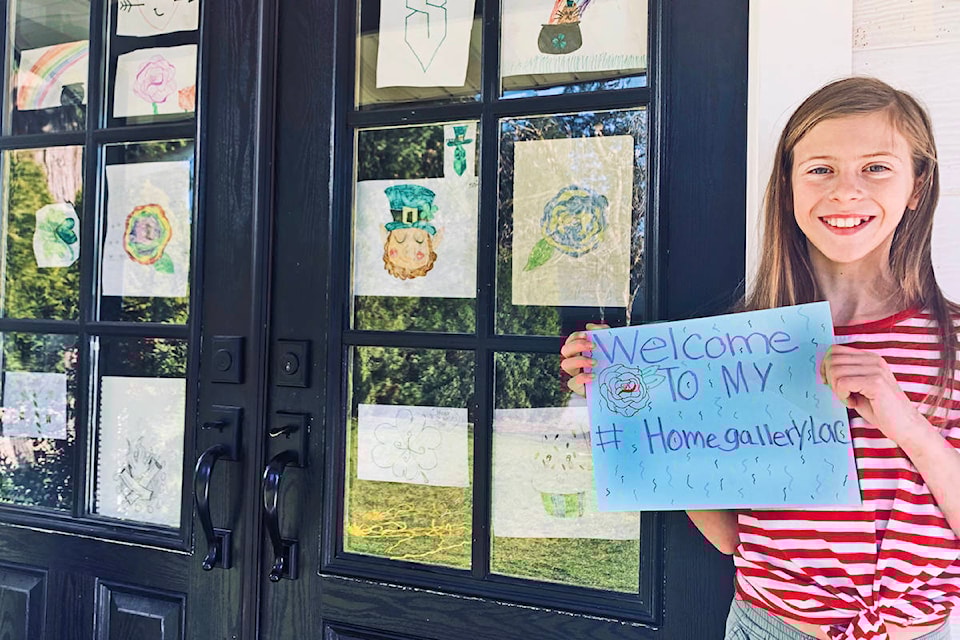 Welcome
To MY
# HomegallerysLove